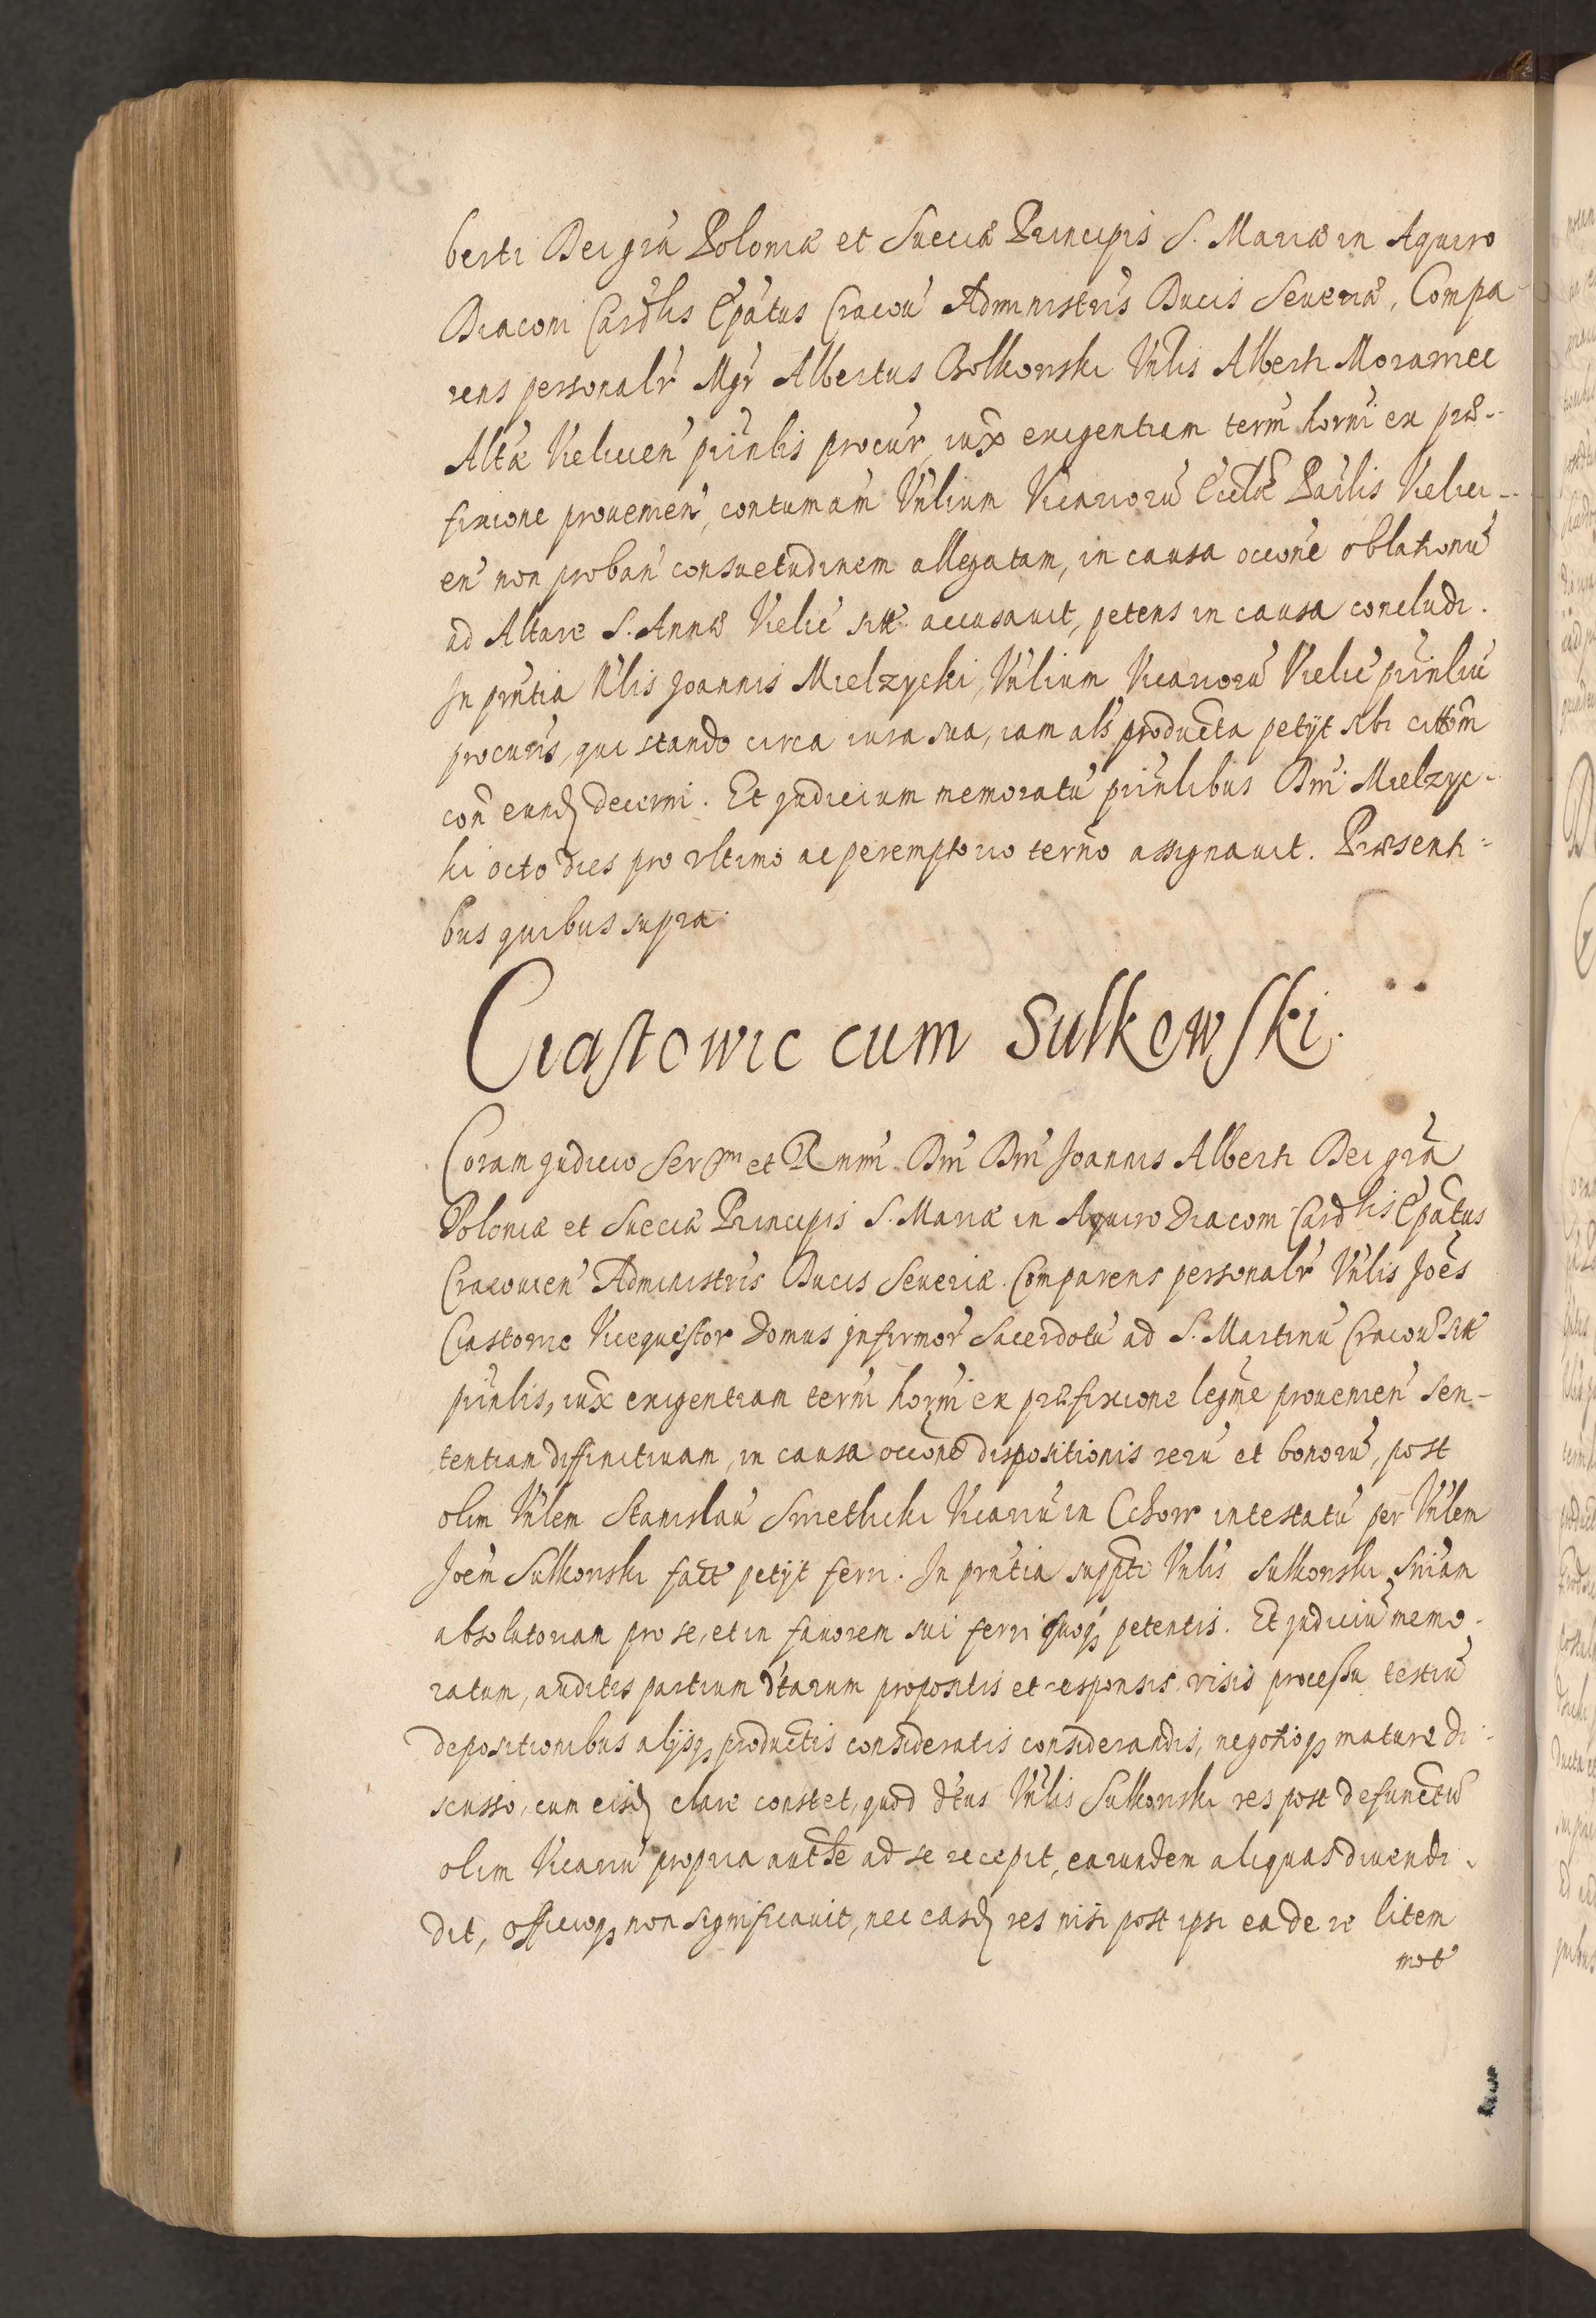 berti Dei gra Poloniæ et Sueciæ Principis S. Mariæ in Aquiro
Diaconi Cardlis Epatus Cracou Administris Ducis Seueriæ, Compa
rens personalr Mgr Albertus Bolkowski Vnlis Alberti Morawiec
Altæ Vielicien prinlis procur, iux exigentiam term horni ex præ-
fixione prouenien, contumam Vnlium Vicarioru Ecclæ Paɾlis Vielici-
en non proban consuetudinem allegatam, in causa occone oblationu
ad Altare S. Annæ Vielic sitt. accusauit, petens in causa concludi.
In prntia Vlis Joannis Mielzycki, Vnlium Vicarioru Vielic prinliu
procuris, qui stando circa iura sua, iam als producta petÿt sibi cittom
con eund decerni. Et Judicium memoratu prinlibus Dni Mielzyc-
ki octo dies pro vltimo ac peremptorio termo assignauit. Præsenti=
bus quibus supra.
Ciastowic cum Sulkowski.
Coram Judicio Sermi et Rmi Dni Dni Joannis Alberti Dei gra
Poloniæ et Sueciæ Principis S. Mariæ in Aquiro Diaconi Cardlis Epatus
Cracouien Administris Ducis Seueriæ. Comparens personalr Vnlis Joes
Ciastowic Vicequestor Domus Infirmor Sacerdotu ad S. Martinu Cracou sitt
prinlis, iux exigentiam term horni ex præfixione legme prouenien sen-
tentiam diffinitiuam, in causa occone dispositionis reru et bonoru, post
olim Vnlem Stanislau Swietlicki Vicariu in Cchow intestatu per Vnlem
Joem Sulkowski fact petÿt ferri. In prntia suppti Vnlis Sulkowski Sniam
absolutoriam pro se, et in fauorem sui ferri quoq petentis. Et Judiciu memo-
ratum, auditis partium dtarum propositis et responsis, visis processu testiu
depositionibus alÿsq productis consideratis considerandis, negotioq mature di-
scusso, cum eisd clare constet, quod dtus Vnlis Sulkowski res post defunctu
olim Vicariu propria authte ad se recepit, earundem aliquas diuendi-
dit, officioq non significauit, nec easd res nisi post ipsi ea de re litem
mot